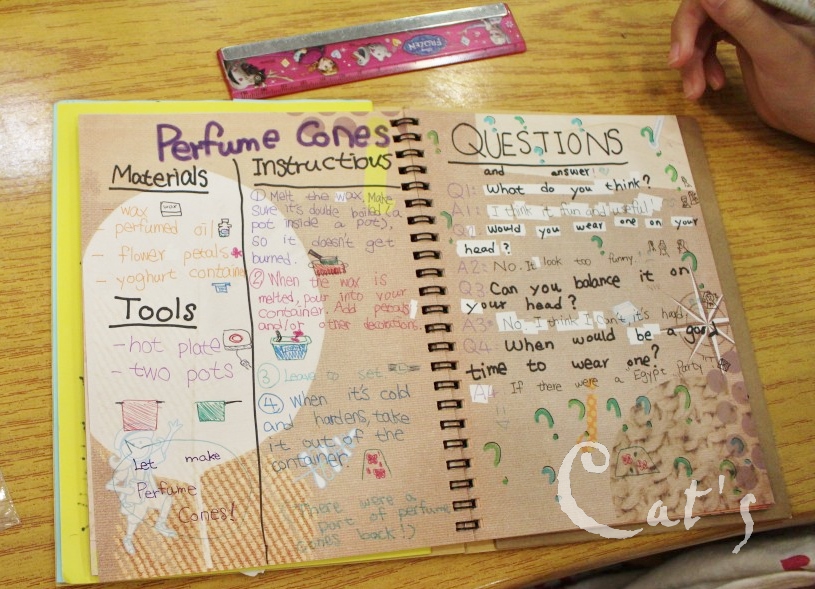 FROZEN
Perfume Cones
Materials
wax
- perfumed oil
- flower petals
- yoghurt container
Tools
- hot plate
- two pots
Let make
Perfume
Cones!
Instructions
① Melt the wax. Make
sure it's double boiled (a
pot inside a pot),
so it doesn't get
burned.
② When the wax is
melted, pour into your
container. Add petals
and/or other decorations.
③ Leave to set
④ When it's cold
and hardens, take
it out of the
container.
(There were a
part of perfume
cones back!)
QUESTIONS
and answer!
Q1: What do you think?
A1: I think it fun and useful!
Would you wear one on your
head?
A2: No. It look too funny.
Q3 Can you balance it on
your head?
A3: No, I think I can't, it's hard
Q4: When would be a good
time to wear one?
A4: If there were a Egypt Party!
Cat's